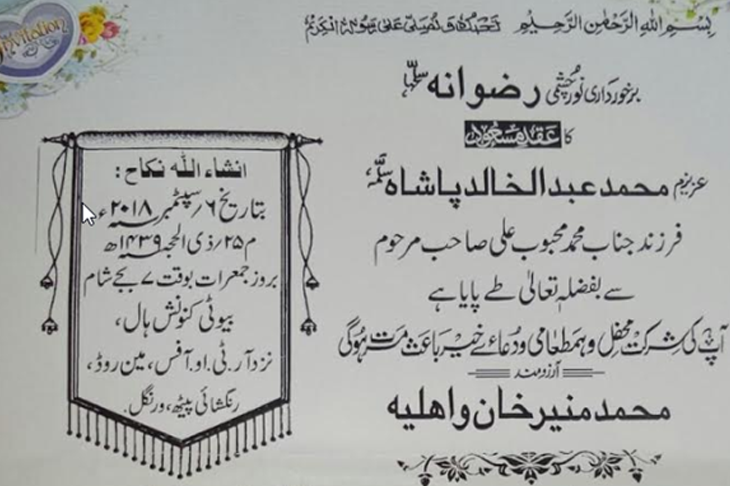 Invitation
بِسْمِ اللهِ الرَّحْمٰنِ الرَّحِیْمِ نَحْمَدُہٗ وَنُصَلِّیْ عَلٰی رَسُوْلِہِ الْکَرِیْمْ
برخورداری نورچشمی رضوانہ سلّمہا
کا عقد مسعود
عزیزم محمد عبدالخالد پاشاہ سلّمہٗ
فرزند جناب محمد محبوب علی صاحب مرحوم
سے بفضلہٖ تعالیٰ طے پایا ہے
آپ کی شرکت محفل و ہمطعامی و دعائے خیر باعث مسرت ہوگی
آرزو مند
محمد منیر خان و اہلیہ
انشاء اللہ نکاح:
بتاریخ ۶؍سپٹمبر ۲۰۱۸ء
م ۲۵؍ذی الحجہ ۱۴۳۹ھ
بروز جمعرات بوقت ۷ بجے شام
بیوٹی کنونشن ہال،
نزد آر.ٹی.او.آفس، مین روڈ،
رنگشائی پیٹھ، ورنگل.